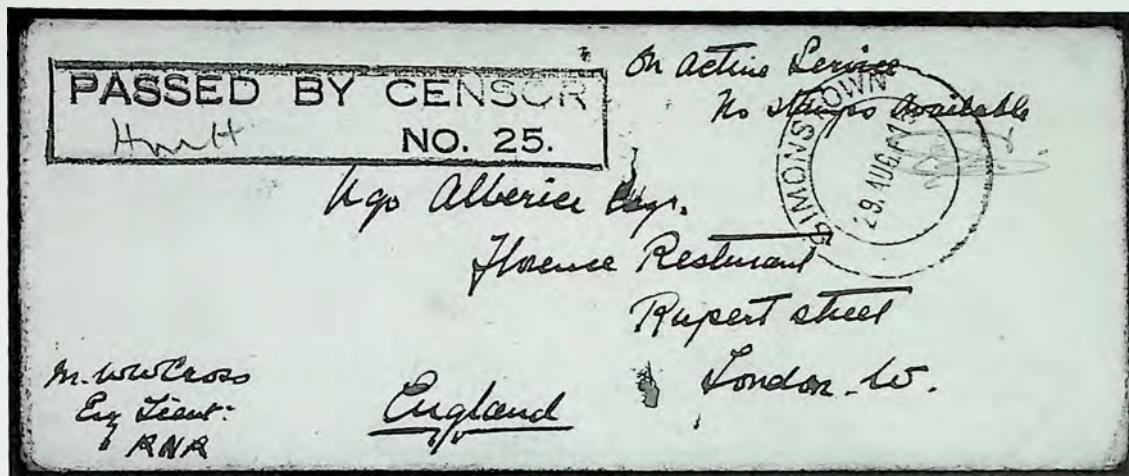 PASSED BY CENSOR
HmH NO. 25.
On Active Service
No stamps Available
SIMONSTOWN
29. AUG. 17
Ugo Alberici Esqr.
Florence Restaurant
Rupert street
London. W.
England
M. WW Cross
Eng Lieut:
RNR